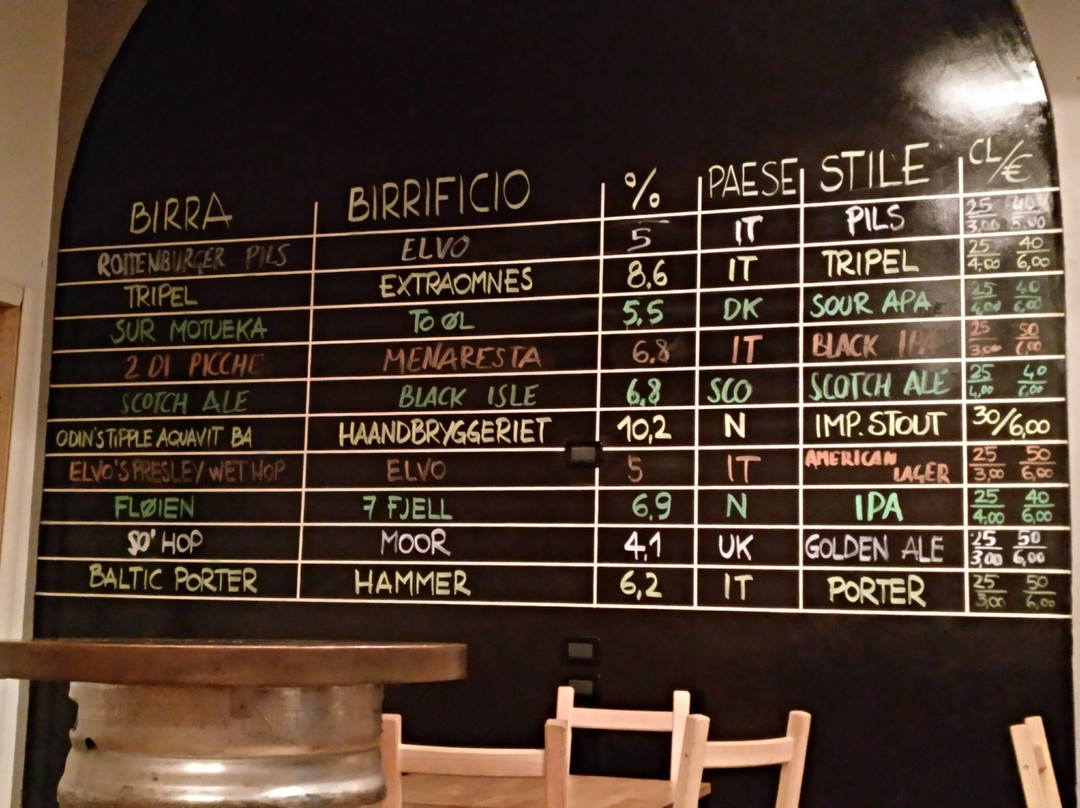 BIRRA BIRRIFICIO % PAESE STILE CL/€
ROTTENBURGER PILS ELVO 5 IT PILS 25/3,00 40/5,00
TRIPEL EXTRAOMNES 8,6 IT TRIPEL 25/4,00 40/6,00
SUR MOTUEKA TO ØL 5,5 DK SOUR APA 25/4,00 40/6,00
2 DI PICCHE MENARESTA 6,8 IT BLACK IPA 25/3,00 50/6,00
SCOTCH ALE BLACK ISLE 6,8 SCO SCOTCH ALE 25/4,00 40/6,00
ODIN'S TIPPLE AQUAVIT BA HAANDBRYGGERIET 10,2 N IMP. STOUT 30/6,00
ELVO'S PRESLEY WET HOP ELVO 5 IT AMERICAN LAGER 25/3,00 50/6,00
FLØIEN 7 FJELL 6,9 N IPA 25/4,00 40/6,00
SO' HOP MOOR 4,1 UK GOLDEN ALE 25/3,00 50/6,00
BALTIC PORTER HAMMER 6,2 IT PORTER 25/3,00 50/6,00